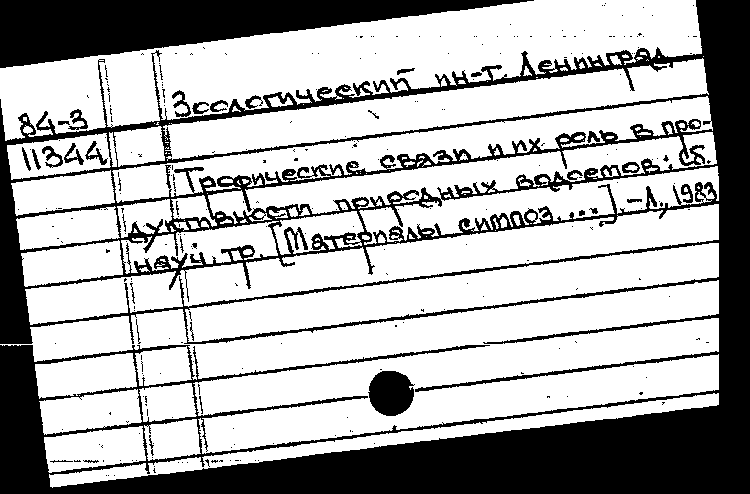 84-3
11344
Зоологический ин-т. Ленинград.
Трофические связи и их роль в про-
дуктивности природных водоемов: Сб.
науч. тр. [Материалы симпоз. ...]. - Л., 1983